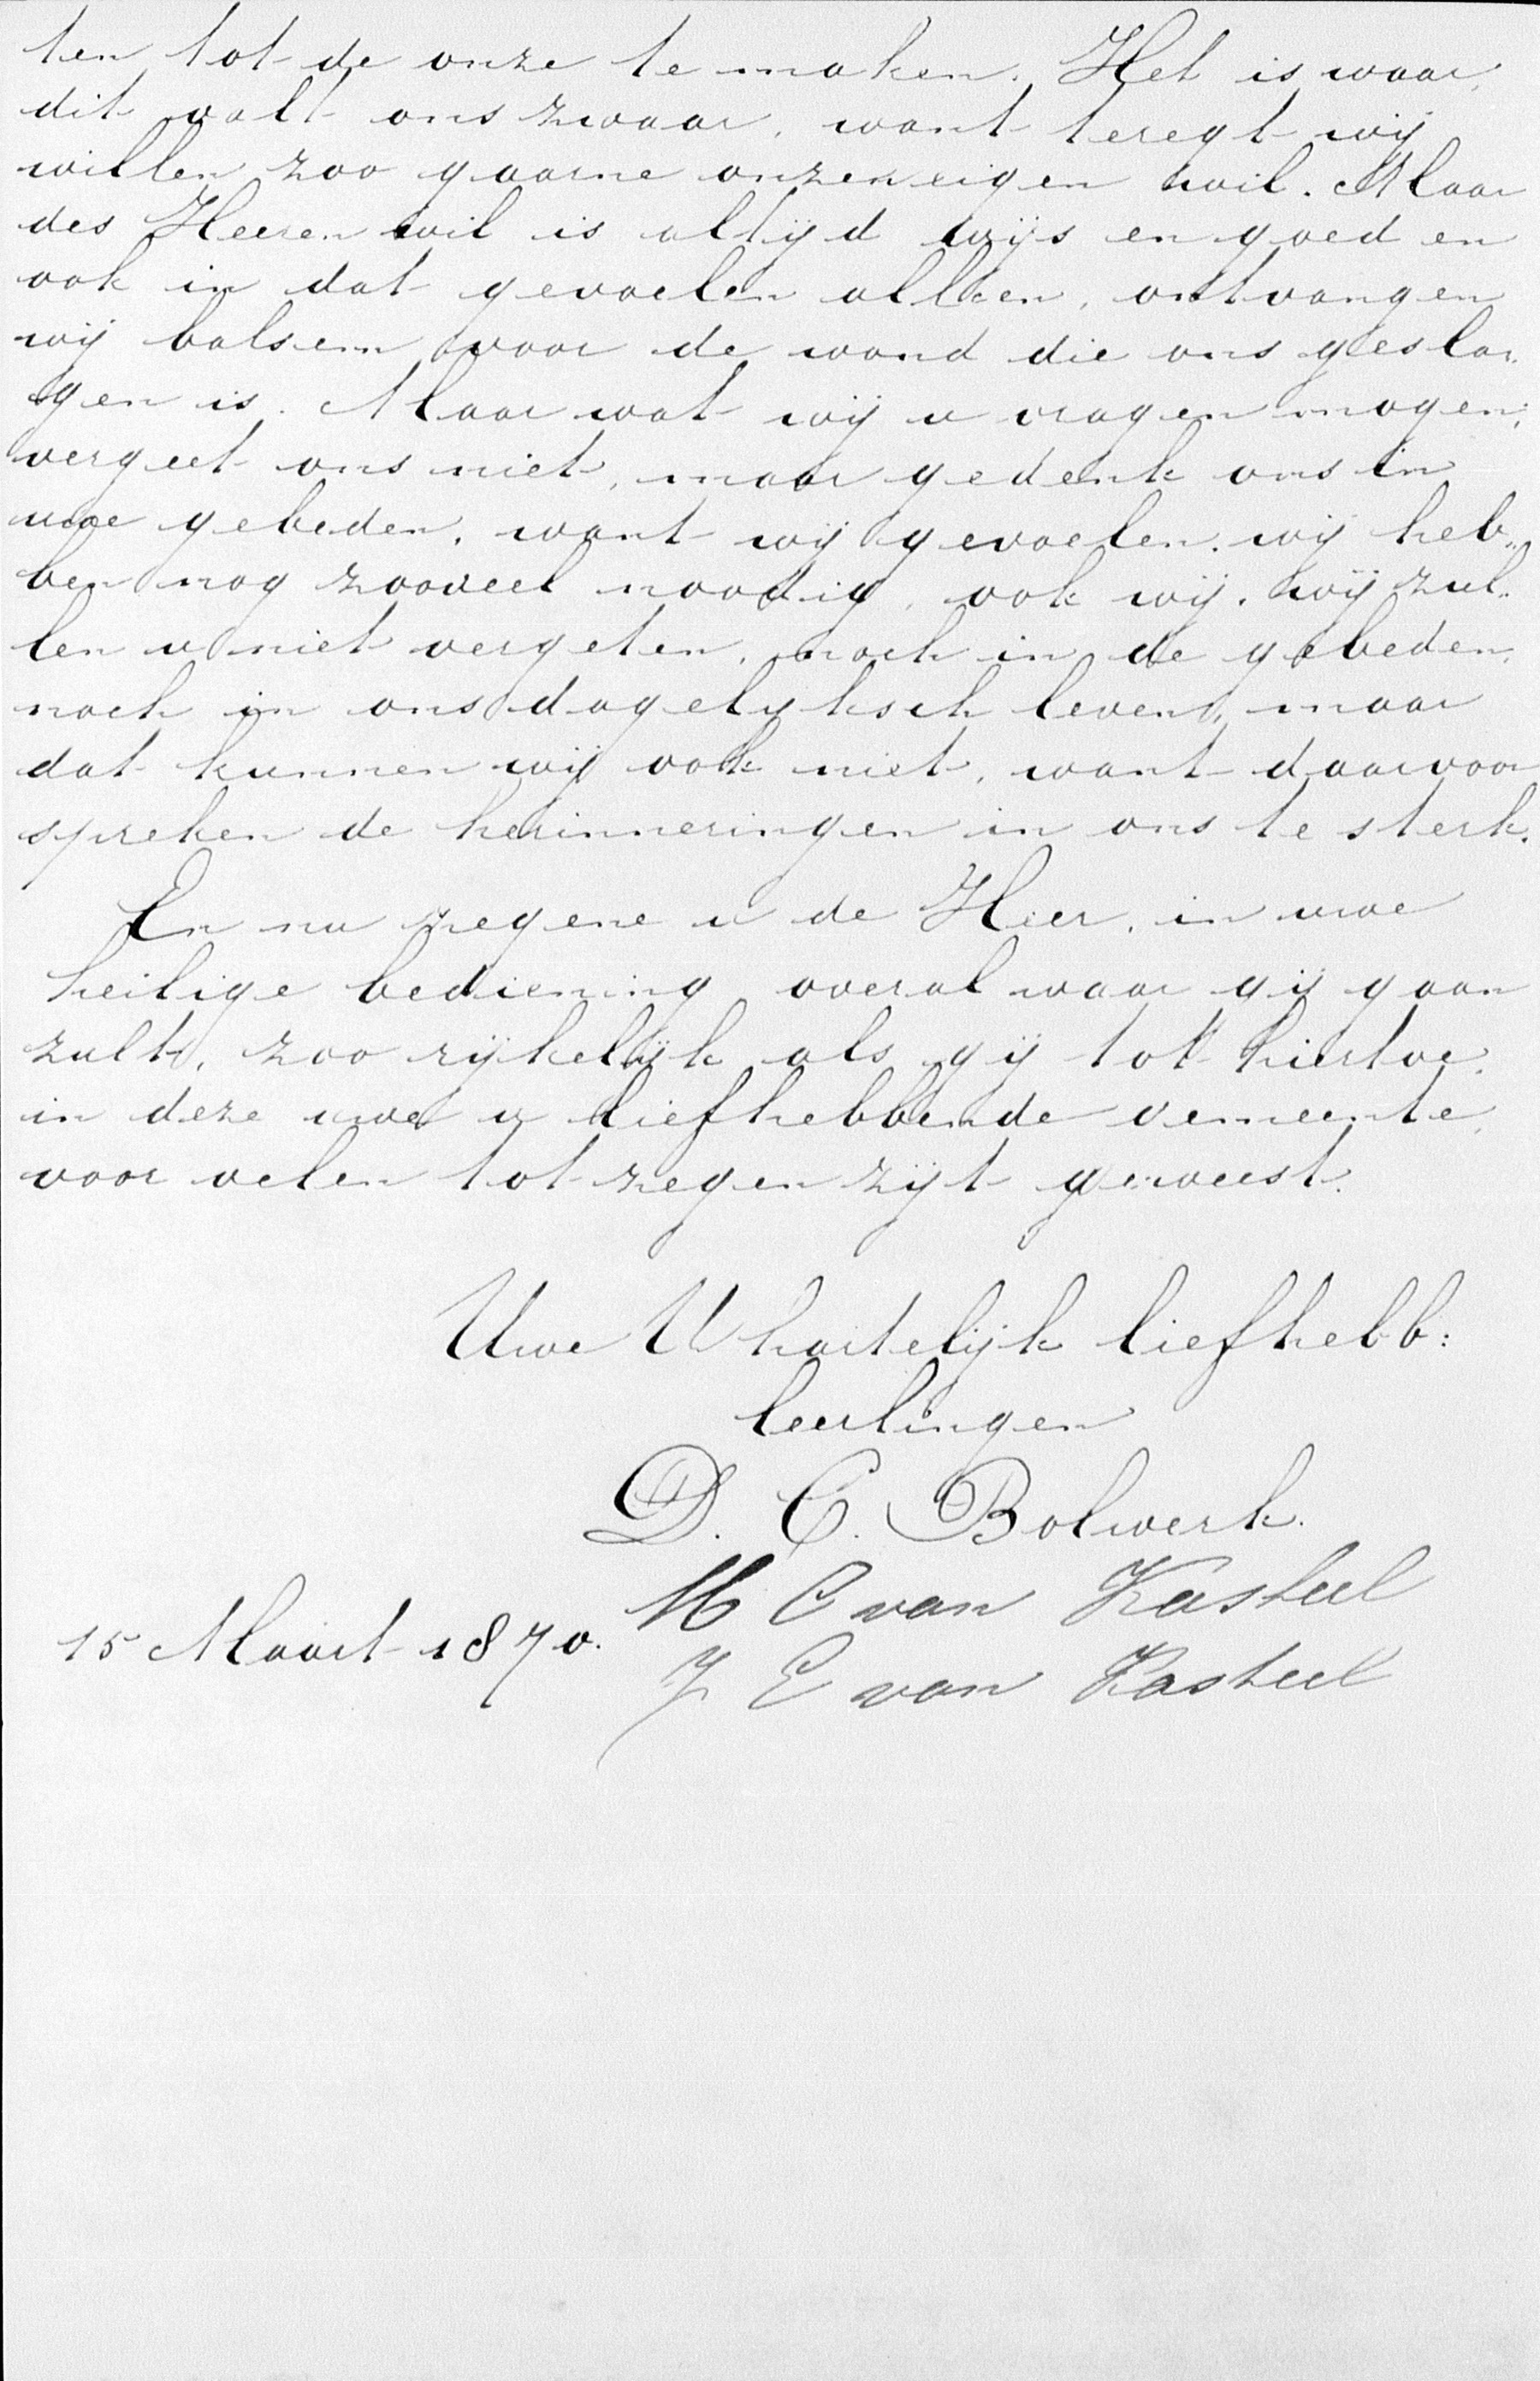 ten tot de onze te maken. Het is waar,
dit valt ons zwaar, want teregt wij
willen zoo gaarne onzen eigen wil. Maar
des Heeren wil is altijd wijs en goed en
ook in dat gevoelen alleen, ontvangen
wij balsem voor de wond die ons gesla„
gen is. Maar wat wij u vragen mogen;
vergeet ons niet, maar gedenk ons in
uwe gebeden, want wij gevoelen, wij heb„
ben nog zooveel noodig, ook wij. wij zul„
len u niet vergeten, noch in de gebeden,
noch in ons dagelyksch leven, maar
dat kunnen wij ook niet, want daarvoor
spreken de herinneringen in ons te sterk.
En nu zegene u de Heer, in uwe
heilige bediening overal waar gij gaan
zult, zoo rijkelijk als gij tot hiertoe,
in deze uwe u liefhebbende gemeente,
voor velen tot zegen zijt geweest.
Uwe U hartelijk liefhebb:
leerlingen
D. C. Bolwerk.
M C van Kasteel
15 Maart 1870.
J E van Kasteel